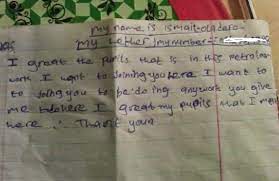 my name is ismail oladaro
my letter / my number =
I great the pupils that is in this petrolar
work I want to joining you here I want to
to joing you to be doing anywork you give
me to here I great my pupils that I met
here ∴ Thank your